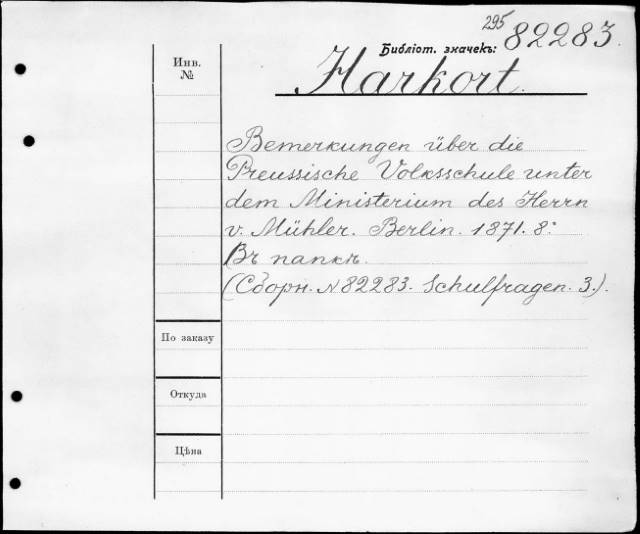 295
Библіот. значекъ: 82283.
Harkort.
Инв.
№
Bemerkungen über die
Preussische Volksschule unter
dem Ministerium des Herrn
v. Mühler. Berlin. 1871. 8º
Въ папкѣ.
(Сборн. № 82283. Schulfragen. 3.).
По заказу
Откуда
Цѣна